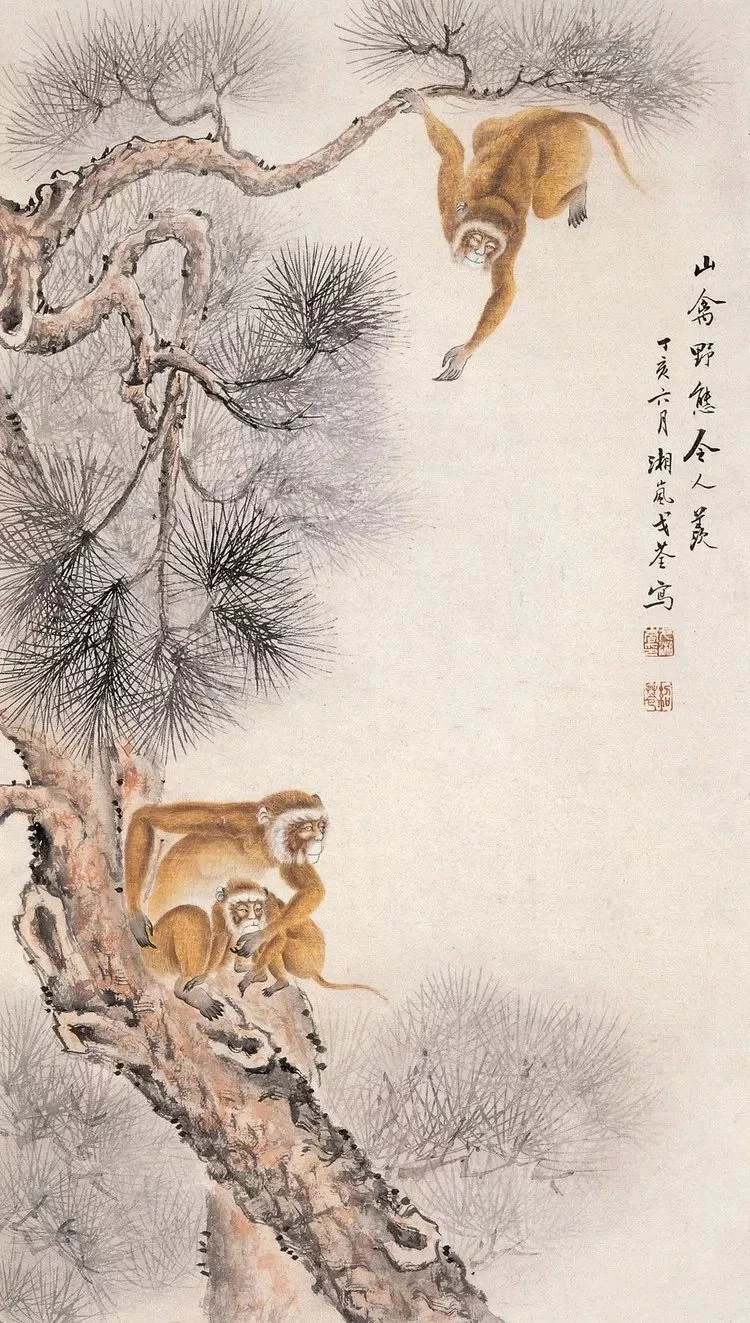 山禽野態令人羨
丁亥六月湘嵐戈荃寫